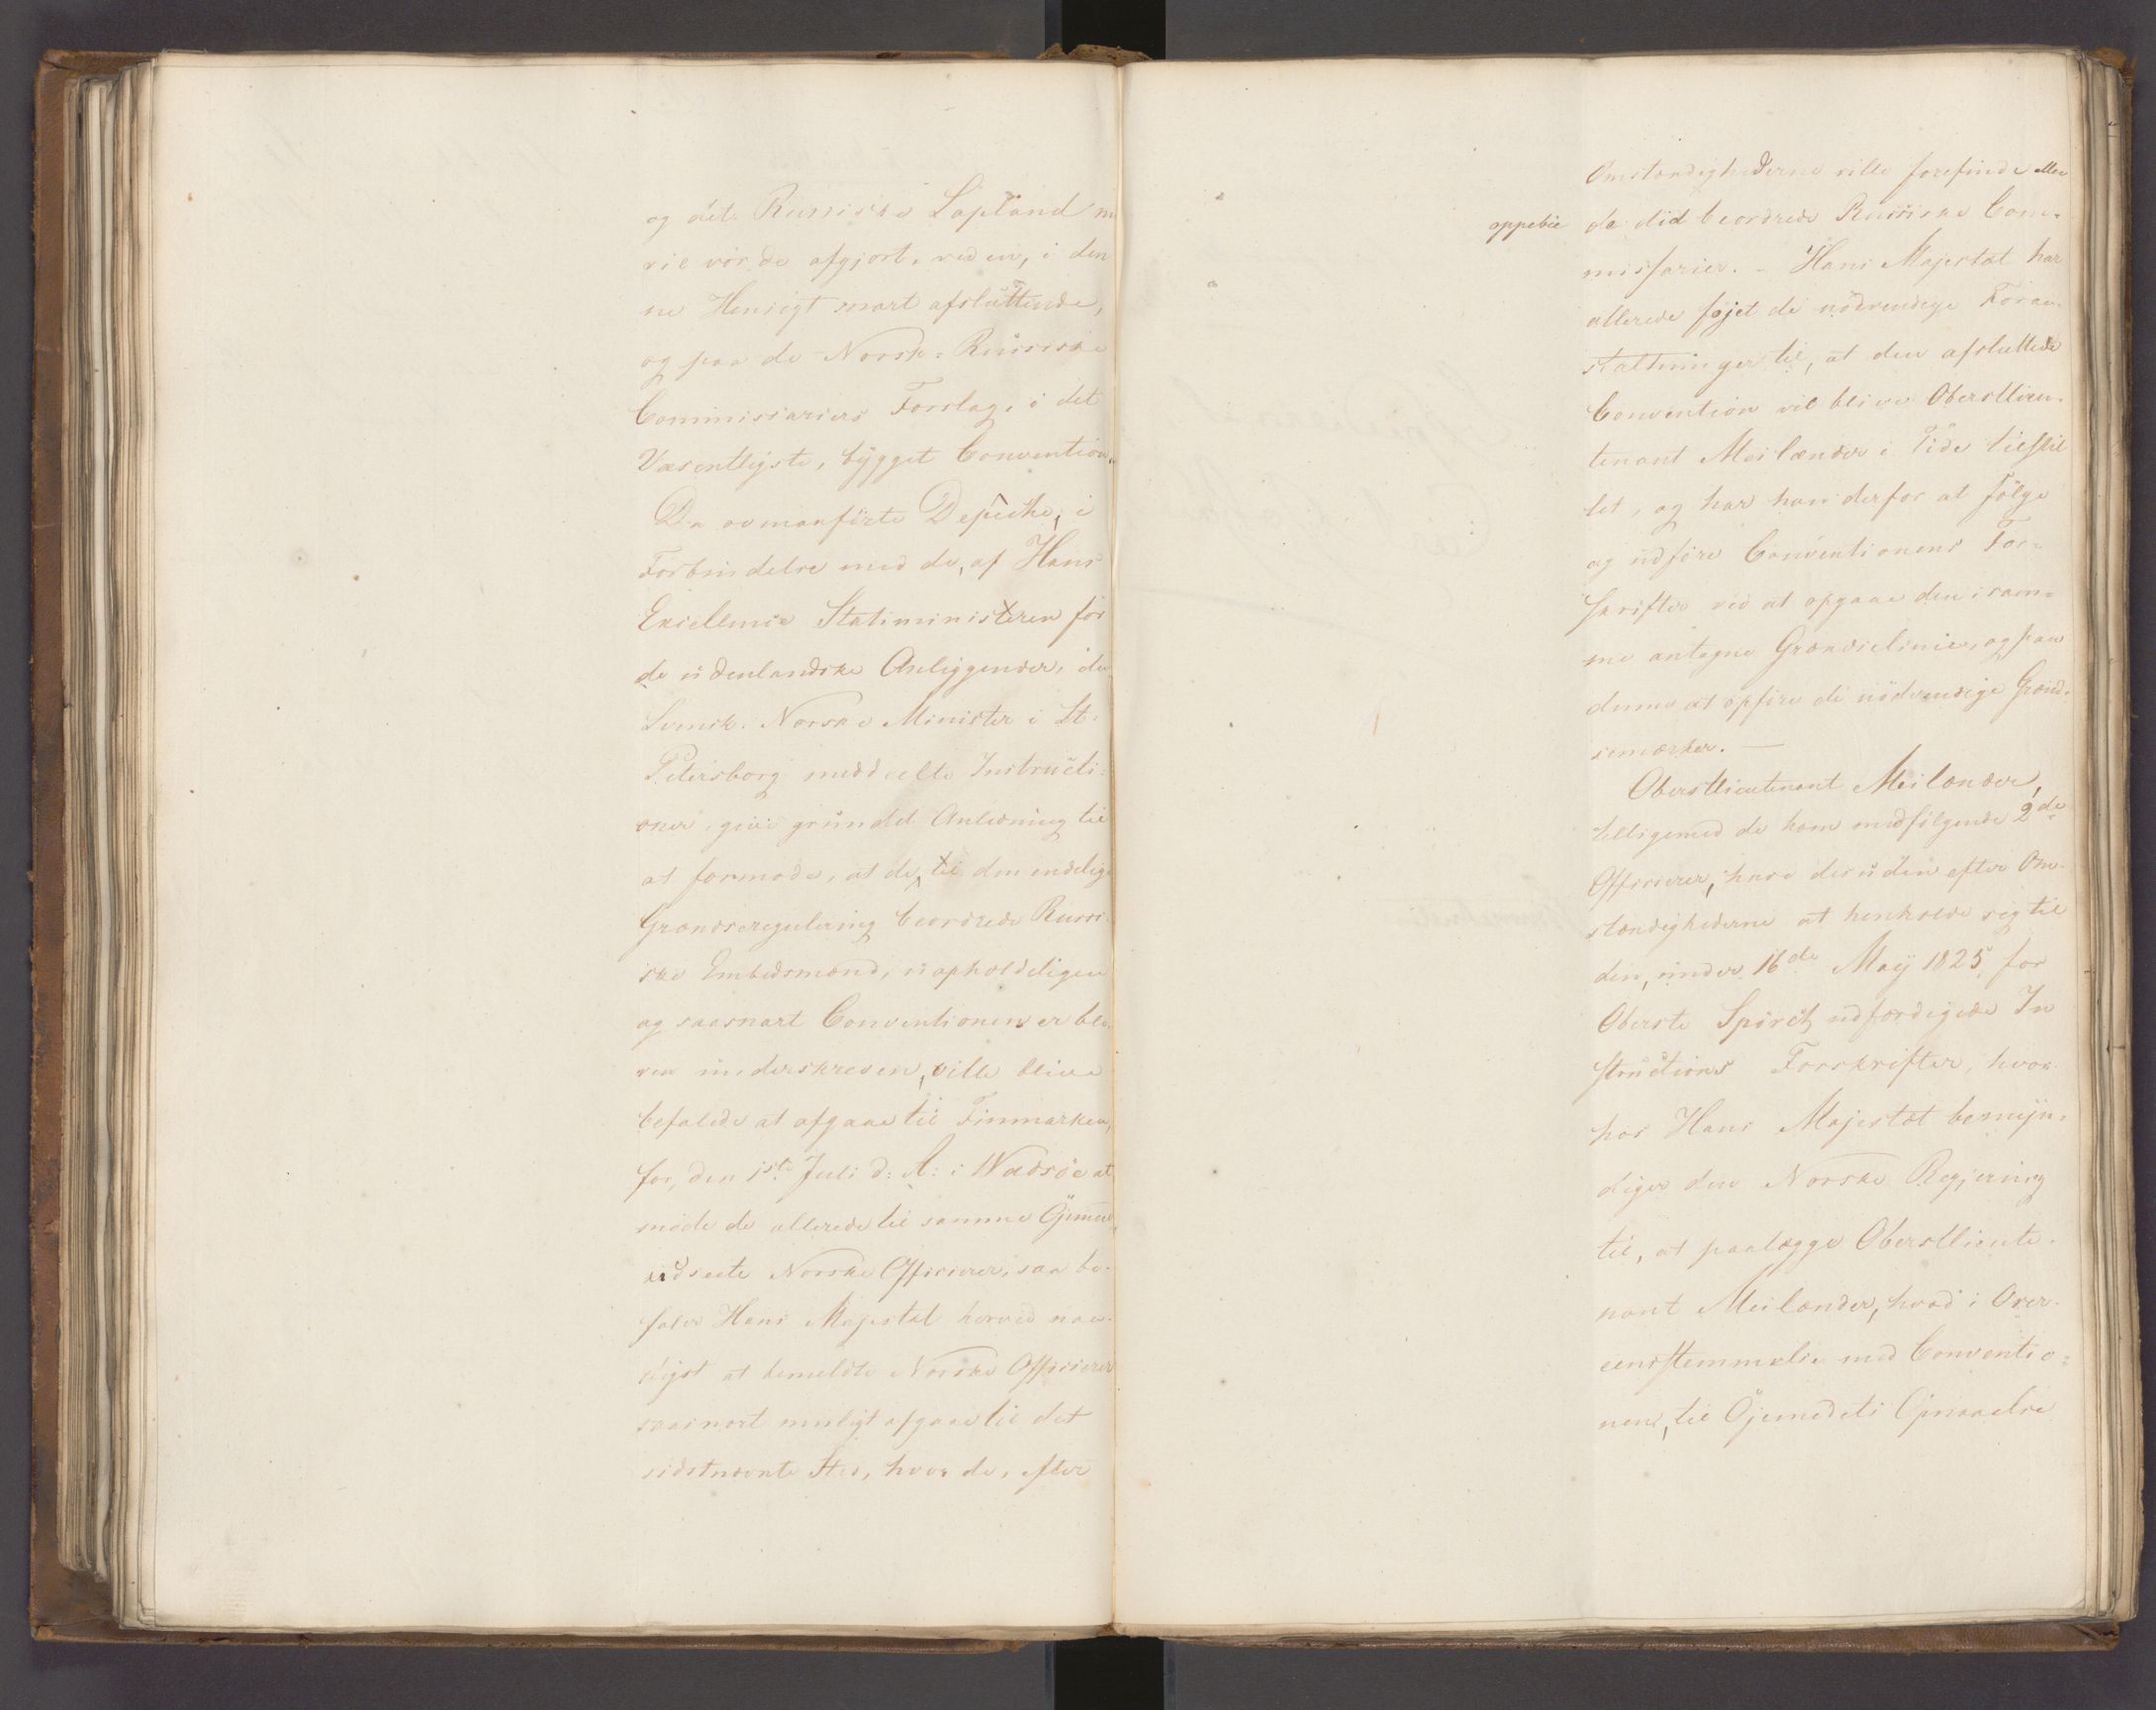 og det Russiske Lapland
vil vorde afgjort, ved en, i den
ne Hensigt snart afsluttende,
og paa de Norsk-Russiske
Commissariers Forslag, i det
Væsentligste, bygget Convention.
Da ovmanførte Depêche, i
Forbindelse med de, af Hans
Excellence Statsministeren for
de udenlandske Anliggender, den
Svensk-Norske Minister i St:
Petersborg meddeelte Instructi-
oner, give grundet Anledning til
at formode, at de, til den endelige
Grændseregulering beordrede Russi-
ske Embedsmænd, uopholdeligen
og saasnart Conventionen er ble-
ven underskreven, ville blive
befalede at afgaae til Finmarken,
for, den 1ste Juli d: A: i Wadsöe at
møde de allerede til samme Øjemed
udseete Norske Officierer, saa be-
faler Hans Majestæt herved naa-
digst at bemeldte Norske Officierer
saasnart muligt afgaae til det
sidstnævnte Sted, hvor de, efter
Omstændighederne ville forefinde eller
oppebie de did beordrede Russiske Com-
missarier. - Hans Majestæt har
allerede føjet de nödvendige Foran-
staltninger til, at den afsluttede
Convention vil blive Oberstlieu-
tenant Meilænder i Tide tilstil
let, og har han derfor at følge
og udføre Conventionens For-
skrifter ved at opgaae den i sam-
me antagne Grændselinie, og paa
denne at opføre de nödvendige Grænd-
semærker. —
Oberstlieutenant Meilænder,
tilligemed de ham medfølgende 2de
Officierer, have desuden efter Om-
stændighederne at henholde sig til
den, under 16de Maÿ 1825 for
Oberste Spørck udfærdigede In
structions Forskrifter, hvor-
hos Hans Majestæt bemÿn-
diger den Norske Regjering
til, at paalægge Oberstlieute-
nant Meilænder, hvad i Over-
eensstemmelse med Conventio-
nen, til Øjemedets Opnaaelse